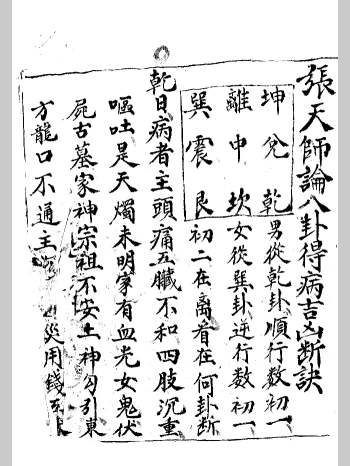 張天師論八卦得病吉凶断訣
坤兌乾 男從乾卦順行数初一
離中坎 女從巽卦逆行数初一
巽震艮 初二在離看在何卦断
乾日病者主頭痛五臟不和四肢沉重
嘔吐是天燭未明家有血光女鬼伏
屍古墓家神宗祖不安土神勾引東
方龍口不通主 災用錢五